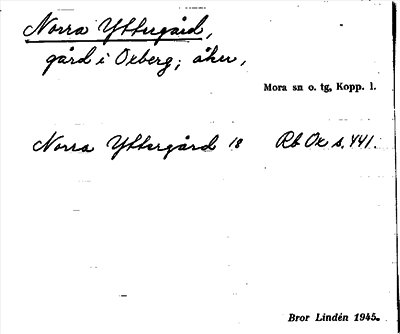 Norra Yttergård,
gård i Oxberg; åker,
Mora sn o. tg, Kopp. l.
Norra Yttergård 18 Rb Ox s. 441.
Bror Lindén 1945.